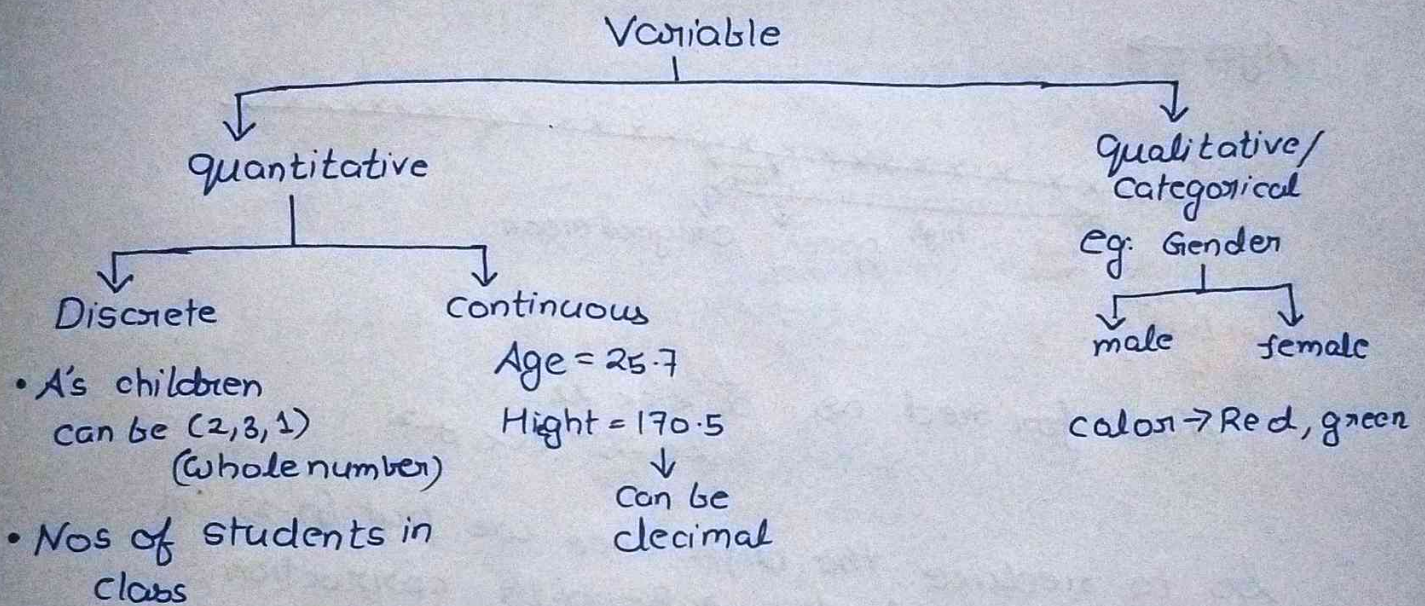 Variable
quantitative
Discrete
• A's children
can be (2,3,1)
(whole number)
• Nos of students in
class
continuous
Age = 25.7
Hight = 170.5
↓
can be
decimal
qualitative/
categorical
eg: Gender
male female
calor → Red, green